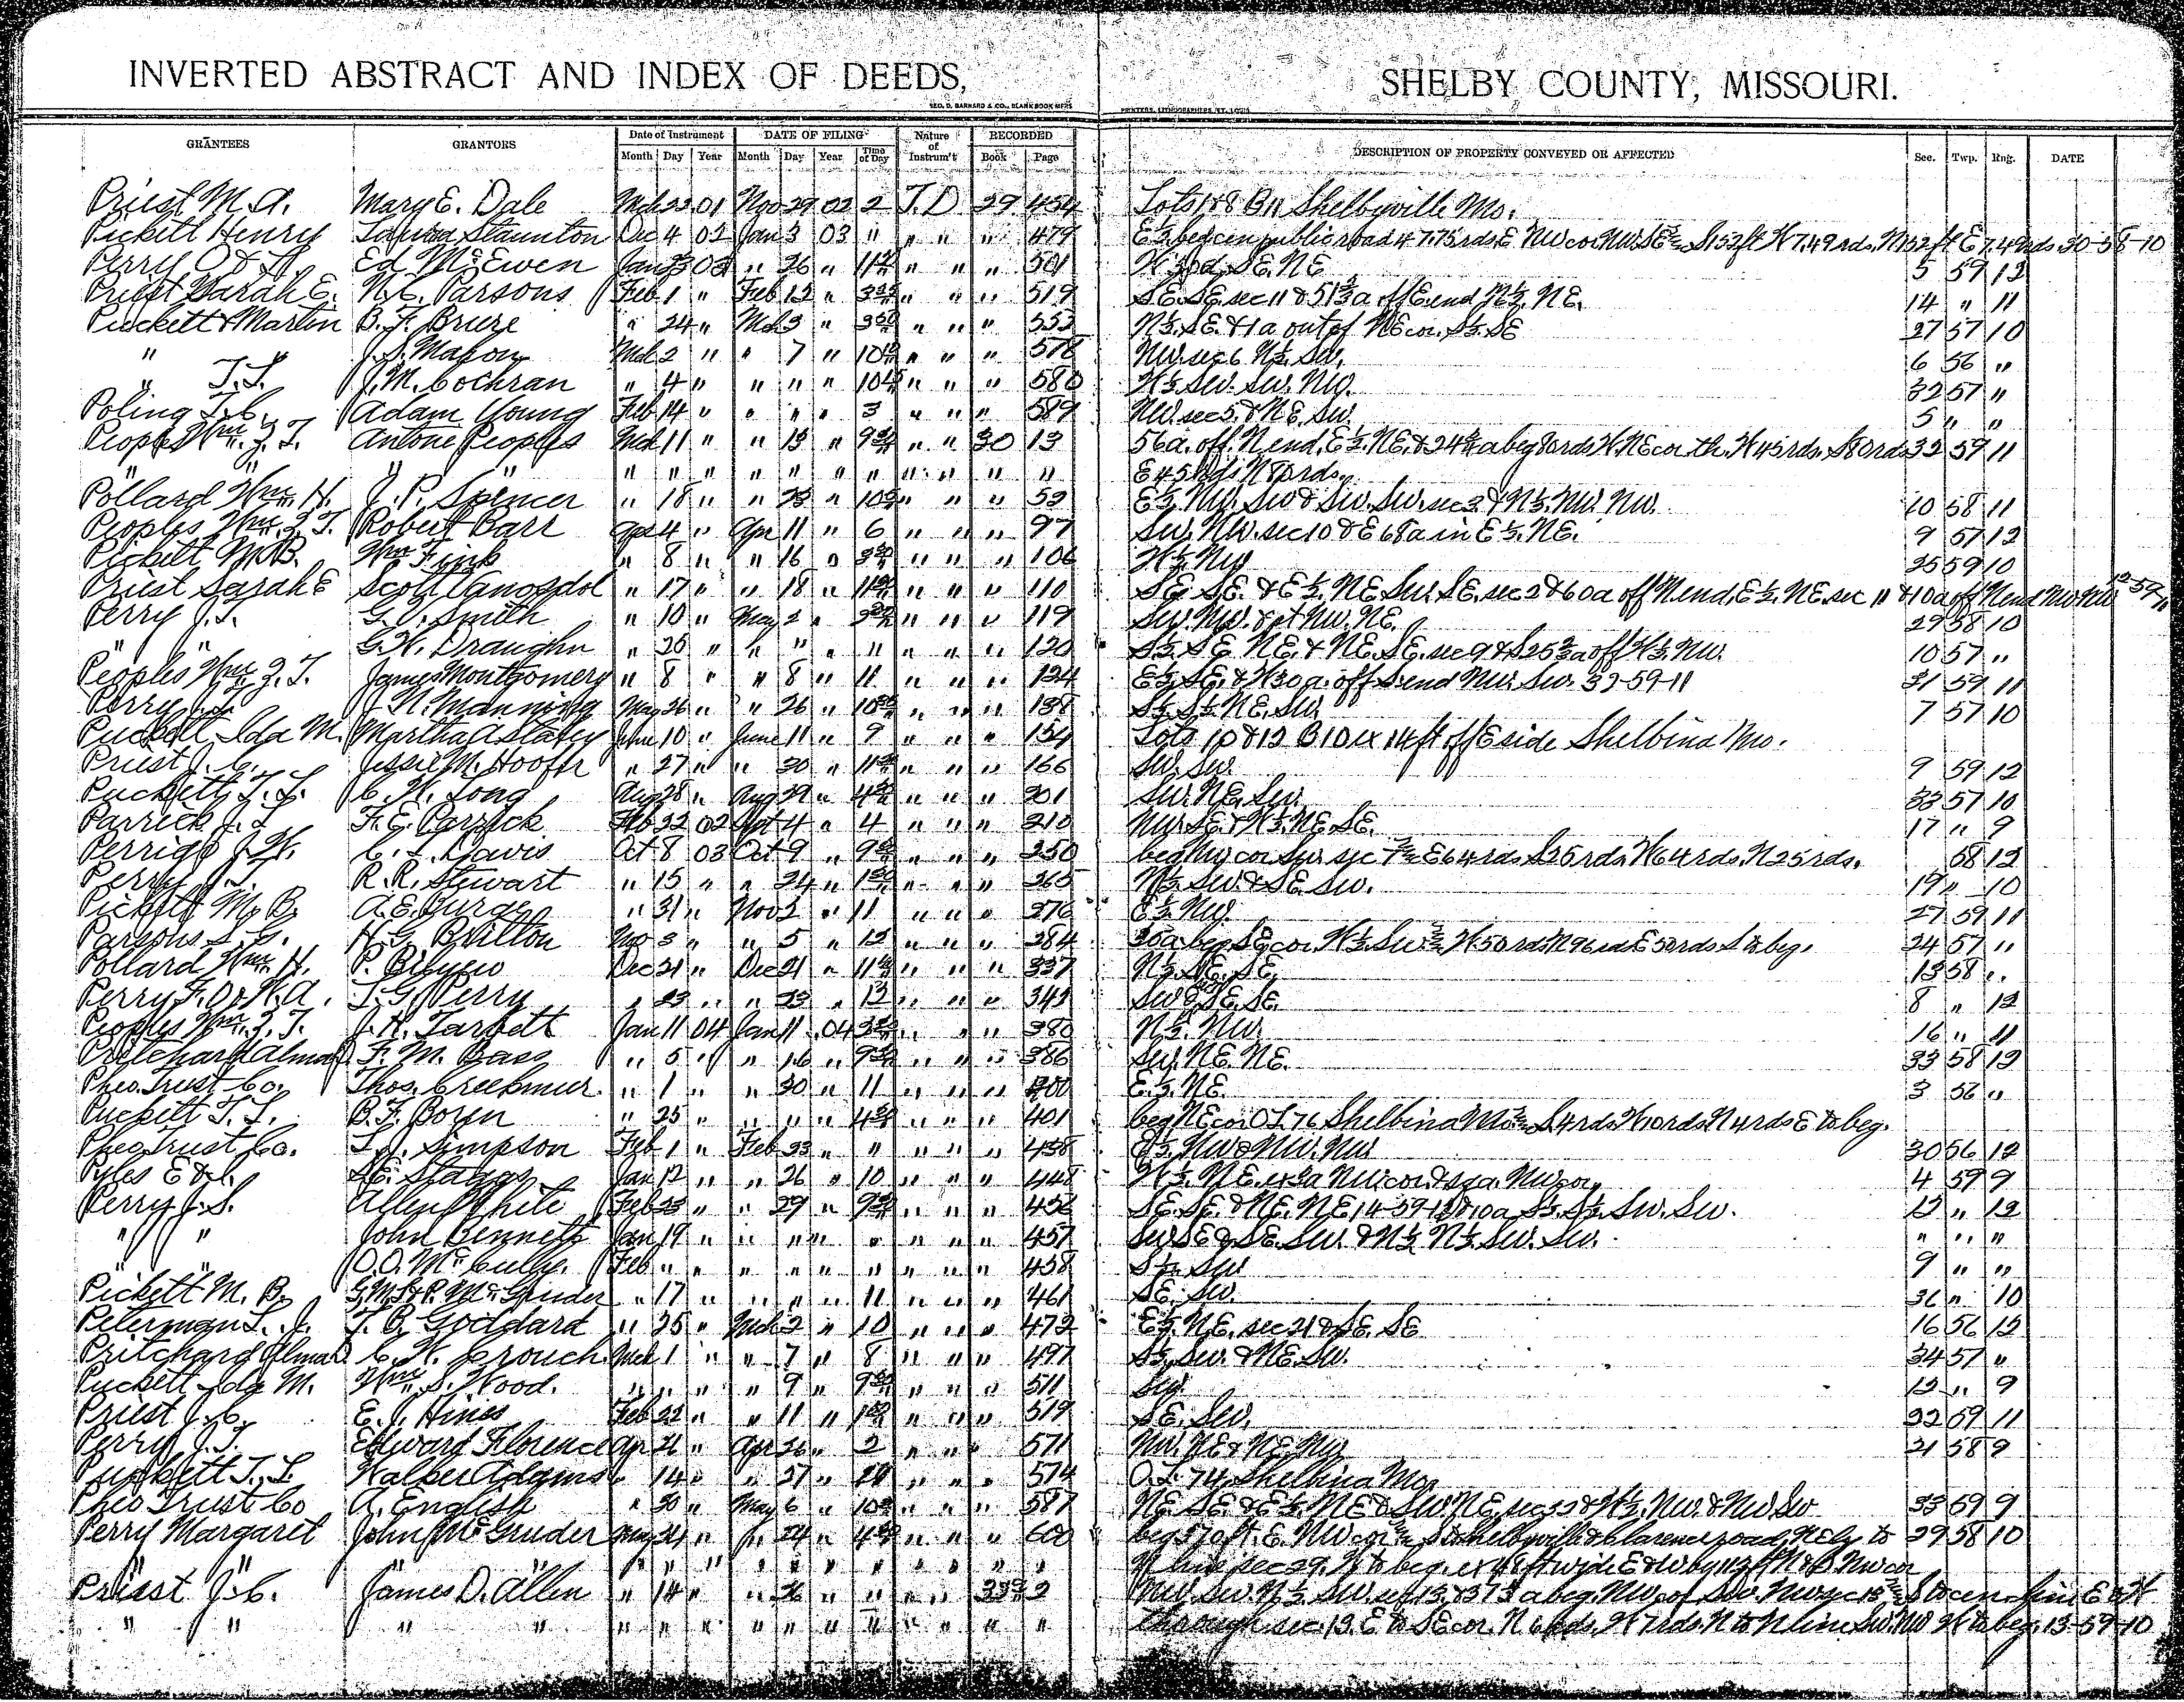 INVERTED ABSTRACT AND INDEX OF DEEDS, SHELBY COUNTY, MISSOURI.
GEO. D. BARNARD & CO., BLANK BOOK MFRS PRINTERS, LITHOGRAPHERS, ST. LOUIS
GRANTEES GRANTORS Date of Instrument DATE OF FILING Nature of Instrum't RECORDED DESCRIPTION OF PROPERTY CONVEYED OR AFFECTED Sec. Twp. Rng. DATE
Month Day Year Month Day Year Time of Day Book Page
Priest M. A. Mary E. Dale Mch 01 Nov 29 02 2 T. D 29 454 Lots 1 & 8 B 11 Shelbyville Mo.
Pickett Henry Staunton Dec 4 02 Jan 3 03 " " " " 479 E½ beg cen public road 47.75 rds E NW cor NW SE S 152 ft W 7.49 rds. N 152 ft E 7.49 rds 30-58-10
Perry Ed McEwen Jan 23 03 " 26 " " " " 501 SE. NE 5 59 12
Priest Sarah E. N. C. Parsons Feb 1 " Feb 12 " " " " 519 SE. SE sec 11 & 51⅓ a off E end N½. NE. 14 " 11
Puckett & Martin B. F. Bruze " 24 " Mch 3 " 3 " " " 553 N½. SE. & 1 a out of NE cor. S½. SE 27 57 10
" J. S. Mason Mch 2 " " 7 " 10 " " " 578 NW. sec 6 N½. SW. 6 56 "
" T. L. J. M. Cochran " 4 " " " " 10 " " " 580 W½ SW. SW. NW. 32 57 "
Poling T. C. Adam Young Feb 14 " " " " 3 " " " 589 NW. sec 5. & NE. SW. 5 " "
Peoples Wm. Z. T. Antone Peoples Mch 11 " " 13 " 9 " " 30 13 56 a. off. N end, E½. NE. & 24 a beg 80 rds W. NE cor th. W 45 rds. S 80 rds 32 59 11
" " " " " " " " " " " " " " " E 45 rds N 80 rds.
Pollard Wm. H. J. P. Spencer " 18 " " 23 " 10 " " " 52 E½. NW. SW & SW. SW. sec 3 & N½. NW. NW. 10 58 11
Peoples Wm. Z. T. Robert Carr Apr 4 " Apr 11 " 6 " " " 97 SW. NW. sec 10 & E 68 a in E½. NE. 9 57 12
Pickett M. B. Wm Fink " 8 " " 16 " 3 " " " 106 W½ NW 25 59 10
Priest Sarah E Scott Vanosdol " 17 " " 18 " 11 " " " 110 SE. SE. & E½. NE. SW. SE. sec 2 & 60 a off N end. E½. NE. sec 11 & 10 a off N end NW NW 12-59-11
Perry J. T. G. V. Smith " 10 " May 2 " 3 " " " 119 SW. NW. & pt NW. NE. 29 58 10
" " G. W. Draughn " 25 " " " " " " " " 120 S½. SE. NE. & NE. SE. sec 9 & S 25 a off W½. NW. 10 57 "
Peoples Wm. Z. T. James Montgomery " 8 " " 8 " 11 " " " 124 E½. SE. & W 30 a. off S end NW. SW. 32-59-11 31 59 11
Perry J. T. J. N. Manning May 26 " " 26 " 10 " " " 138 S½. S½. NE. SW. 7 57 10
Puckett Ida M. Martha A Staley June 10 " June 11 " 9 " " " 154 Lots 10 & 12 B 10 ex 14 ft off E side Shelbina Mo.
Priest J. C. Jessie M. Hoofer " 27 " " 30 " 11 " " " 166 SW. SW. 9 59 12
Puckett T. L. C. W. Long Aug 28 " Aug 29 " 4 " " " 201 SW. NE. SW. 33 57 10
Parrick J. T. F. E. Parrick Feb 22 02 Sept 4 " 4 " " " 210 NW SE & W½. NE. SE. 17 " 9
Perrigo J. W. C. L. Davis Oct 8 03 Oct 9 " 9 " " " 250 beg NW cor SW. sec 7 E 64 rds. S 25 rds. W 64 rds. N 25 rds. 58 12
Perry J. T. R. R. Stewart " 15 " " 24 " 1 " " " 265 N½. SW. & SE. SW. 19 " 10
Pickett M. B. A. E. Burge " 31 " Nov 2 " 11 " " " 276 E½. NW. 27 59 11
Parsons S. G. H. G. Britton Nov 3 " " 5 " 12 " " " 284 30 a beg SE cor W½. SW W. 50 rds N 96 rds E 50 rds S to beg. 24 57 "
Pollard Wm. H. P. Bibyeo Dec 21 " Dec 21 " 11 " " " 337 N½. SE. SE. 13 58 "
Perry F. O. or N. A. T. G. Perry " 23 " " 23 " 12 " " " 343 SW & SE. SE. 8 " 12
Peoples Wm. Z. T. J. H. Tarbett Jan 11 04 Jan 11 04 3 " " " 380 N½. NW. 16 " 11
Pritchard Alma D. F. M. Bass " 5 " " 16 " 9 " " " 386 SW. NE. NE. 33 58 12
Pheo. Trust Co. Thos. Creekmur " 1 " " 30 " 11 " " " 400 E½. NE. 3 56 "
Puckett T. L. B. F. Boyer " 25 " " " " 4 " " " 401 beg NE cor O. L. 76 Shelbina Mo S 4 rds W 10 rds N 4 rds E to beg.
Pheo Trust Co. Simpson Feb 1 " Feb 23 " " " " " 438 NW & NW. NW 30 56 12
Pyles E & L. Staggs Jan 12 " " 26 " 10 " " " 448 W½. NE. ex NW cor 4 59 9
Perry J. S. Allen White Feb 23 " " 29 " 9 " " " 456 SE. SE. & NE. NE 14-59-12 & 10 a S½. S½. SW. SW. 12 " 12
" " John Bennett Jan 19 " " " " " " " " 457 SW SE & SE. SW. & N½ N½. SW. SW. " " "
" " O. O. McCully. Feb " " " " " " " " " 458 SW 9 " "
Pickett M. B. McGruder " 17 " " " " 11 " " " 461 SE. SW. 36 " 10
Peterman L. J. T. B. Goddard " 25 " Mch 2 " 10 " " " 472 E½. NE. sec 21 & SE. SE 16 56 12
Pritchard Alma D. C. W. Crouch. Mch 1 " " 7 " 8 " " " 497 S½. SW. & NE. SW. 34 57 "
Puckett Ida M. Wm. S. Wood. " " " " 9 " 9 " " " 511 SW. 12 " 9
Priest J. C. E. J. Hines Feb 22 " " 11 " 1 " " " 519 SE. SW. 22 59 11
Perry J. T. Edward Florence Apr 21 " Apr 26 " 2 " " " 571 NW. NE & NE. NW 21 58 9
Puckett T. L. Walker Adams " 14 " " 27 " " " " 574 O. L. 74, Shelbina Mo.
Pheo Trust Co A. English " 30 " May 6 " 10 " " " 587 NE. SE. & E½. NE & SW NE. sec 32 & W½. NW. & NW SW 33 59 9
Perry Margaret John McGruder May 21 " " 24 " 4 " " " 600 beg 570 ft. E. NW cor S to Shelbyville & Clarence road. NEly to 29 58 10
" " " " " " " " " " " " N line sec 29. W to beg. ex 48 ft wide E & W by 112 ft N & S NW cor
Priest J. C. James D. Allen " 14 " " 26 " " " " 2 NW. SW. N½. SW. a beg. NW cor S to cen line E & W
" " " " " " " " " " " " " " through sec. 13. E to SE cor. N rds. W 7 rds. N to N line SW. NW W to beg. 13-59-10